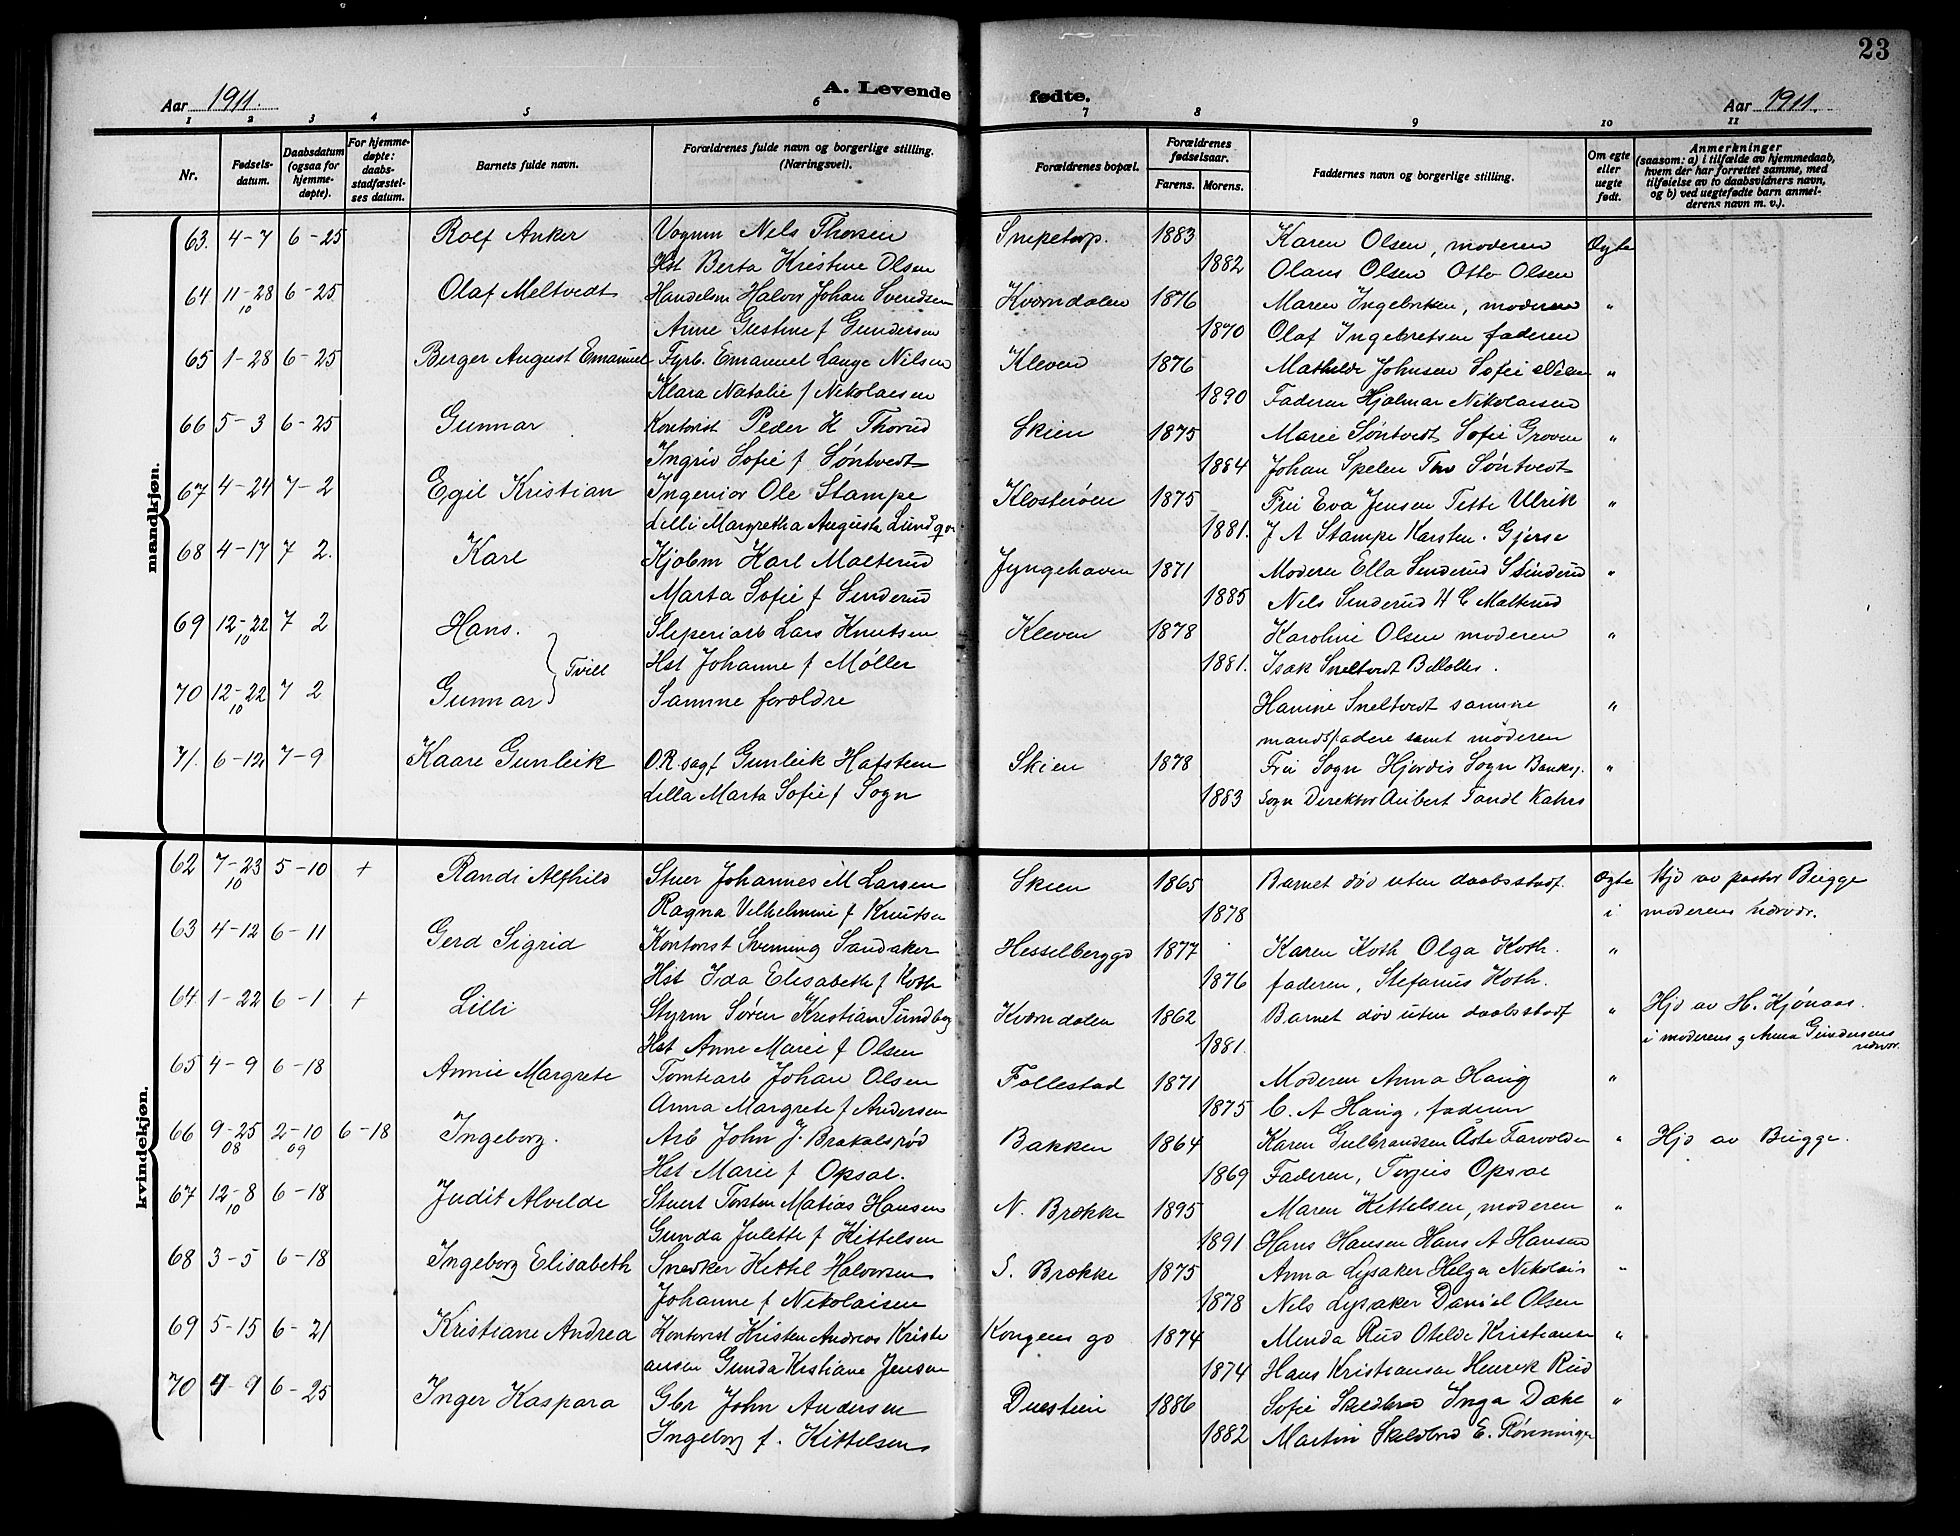 23
Aar 1911.
A. Levende fødte.
Aar 1911.
1 2 3 4 5 6 7 8 9 10 11
Nr.
Fødsels-
datum.
Daabsdatum
(ogsaa for
hjemme-
døpte).
For hjemme-
døpte:
daabs-
stadfæstel-
ses datum.
Barnets fulde navn.
Forældrenes fulde navn og borgerlige stilling.
(Næringsvei).
Forældrenes bopæl.
Forældrenes
fødselsaar.
Farens. Morens.
Faddernes navn og borgerlige stilling.
Om egte
eller
uegte
født.
Anmerkninger
(saasom: a) i tilfælde av hjemmedaab,
hvem der har forrettet samme, med
tilføielse av to daabsvidners navn,
og b) ved uegtefødte barn anmel-
derens navn m. v.).
mandkjøn.
63. 4-7 6-25 Rolf Anker Vognm Nels Thorsen Snipetorp. 1883 Karen Olsen, moderen Ægte
Hst Berta Kristine Olsen 1882 Olaus Olsen Otto Olsen
64 11-28 10 6-25 Olaf Meltvedt Handelsm Halvor Johan Svendsen Kværndalen 1876 Maren Ingebretsen, moderen "
Anne Gustine f Gundersen 1870 Olaf Ingebretsen faderen
65 1-28 6-25 Berger August Emanuel Fyrb. Emanuel Lauge Nilsen Kleven 1876 Mathilde Johnsen Sofie Nilsen "
Klara Natalie f Nikolaisen 1890 Faderen Hjalmar Nikolaisen
66 5-3 6-25 Gunnar Kontorist Peder H Thorud Skien 1875 Marie Søntvedt Sofie Groven "
Ingrid Sofie f Søntvedt 1884 Johan Spelen Søntvedt
67 4-24 7-2 Egil Kristian Ingeniør Ole Stampe Klosterøen 1875 Fru Eva Jensen Tette Ulrik "
Lilli Margretha Augusta Lundqv 1881. J A Stampe Karsten Gjerse
68 4-17 7 2. Kare Kjøbm Karl Malterud Jyngehaven 1871 Moderen Ella Sinderud S Sinderud "
Marta Sofie f Sinderud 1885 Nels Sinderud H C Malterud
69 12-22 10 7 2 Hans. Sliperiarb Lars Knutsen Kleven 1878 Karoline Olsen moderen "
Tvill Hst Johanne f Møller 1881. Isak Sneltvedt
70 12-22 10 7 2 Gunnar Samme forældre Hanine Sneltvedt samme "
mandsfadere samt moderen
71. 6-12 7-9 Kaare Gunleik O.R. sagf Gunleik Hafsten Skien 1878 Fru Sogn Hjørdis Sogn Banksj. "
Lilla Marta Sofie f Sogn 1883 Sogn Direktør Aubert Tandl Kahrs
kvindekjøn.
62 7-23 10 5-10 + Randi Alfhild Stuer Johannes M Larsen Skien 1865 Barnet død uten daabsstadf. Ægte Hjd av pastor Bugge
Ragna Vilhelmine f Knutsen 1878 i moderens nærvær.
63 4-12 6-11 Gerd Sigrid Kontorist Svenning Sandaker Hesselberggd 1877 Karen Koth Olga Koth. "
Hst Ida Elisabeth f Koth 1876 faderen, Stefanus Koth.
64 1-22 6-1 + Lilli Styrm Søren Kristian Sundbg Kværndalen 1862 Barnet død uten daabsstadf " Hjd av H. Kjønaas.
Hst Anne Marie f Olsen 1881. i moderens og Anna Gundersens nærvær.
65 4-9 6-18 Annie Margrete Tomtearb Johan Olsen Follestad 1871 Moderen Anna Haug "
Anna Margrete f Andersen 1875 C. A Haug, faderen
66 9-25 08 2-10 09 6-18 Ingeborg. Arb John J. Brakalsrød Bakken 1864 Karen Gulbrandsen Aste Farvolden " Hjd av Bugge.
Hst Marie f Opsal. 1869 Faderen, Torjus Opsal
67 12-8 10 6-18 Judit Alvilde Stuert Torsten Matias Hansen N. Brekke 1895 Maren Kittelsen, moderen "
Gunda Julette f Kittelsen 1891 Hans Hansen Hans A Hansen
68 3-5 6-18 Ingeborg Elisabeth Snedker Kittel Halvorsen S. Brekke 1875 Anna Lysaker Helga Nikolais "
Johanne f Nikolaisen 1878 Nils Lysaker Daniel Olsen
69 5-15 6-21 Kristiane Andrea Kontorist Kristen Andreas Kristi Kongens gd 1874 Minda Rud Otilde Kristiansen "
ansen Gunda Kristiane Jensen 1874 Hans Kristiansen Henrik Rud
70 4-9 6-25 Inger Kaspara Gbr John Andersen Duestien 1886 Sofie Skeldbred Inga Dale "
Ingeborg f. Kittelsen 1882 Martin Skeldbred E. Rønningen